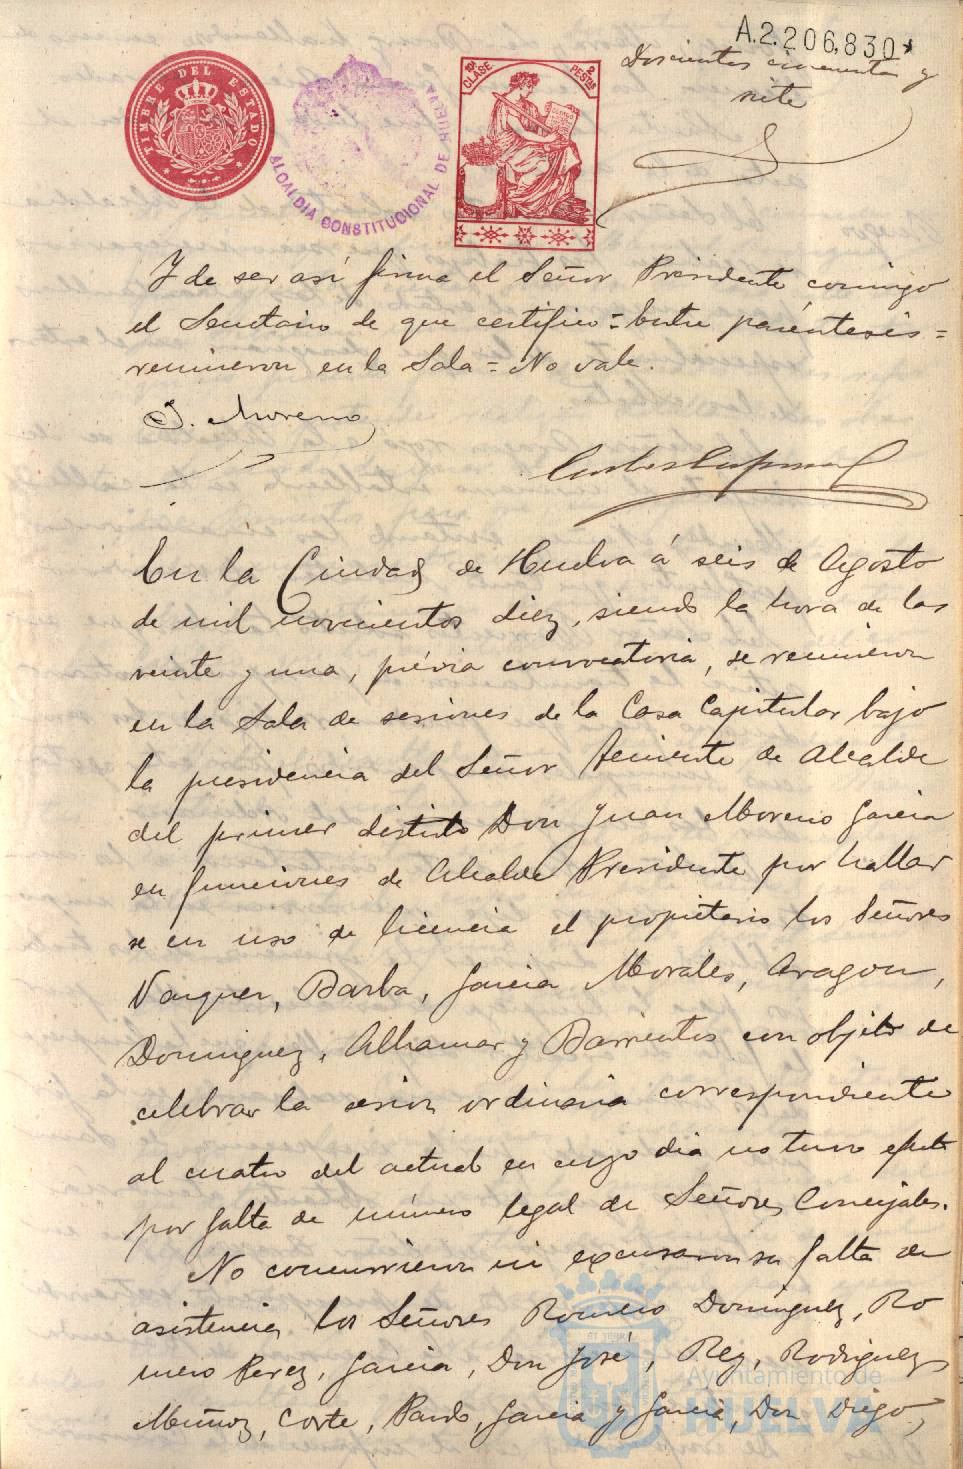 A.2.206,830*
Doscientos cincuenta y
siete
TIMBRE DEL ESTADO
ALCALDIA CONSTITUCIONAL DE HUELVA
10ª CLASE
2 PESTAS
Y de ser así firma el Señor Presidente conmigo
el Secretario de que certifico = Entre paréntesis =
reunieron en la Sala = No vale.
J. Moreno
En la Ciudad de Huelva á seis de Agosto
de mil novecientos diez, siendo la hora de las
veinte y una, prévia convocatoria, se reunieron
en la Sala de sesiones de la Casa Capitular bajo
la presidencia del Señor Teniente de Alcalde
del primer distrito Don Juan Moreno Garcia
en funciones de Alcalde Presidente por hallar
se en uso de licencia el propietario los Señores
Vazquez, Barba, Garcia Morales, Aragon,
Dominguez, Alhamar y Barrientos con objeto de
celebrar la sesion ordinaria correspondiente
al cuatro del actual en cuyo dia no tuvo efecto
por falta de número legal de Señores Concejales.
No concurrieron ni excusaron su falta de
asistencia los Señores Romero Domínguez, Ro
mero Perez, Garcia, Don José, Rey, Rodriguez
Muñoz, Corte, Pardo, Garcia y Garcia, Don Diego,
Ayuntamiento de
HUELVA